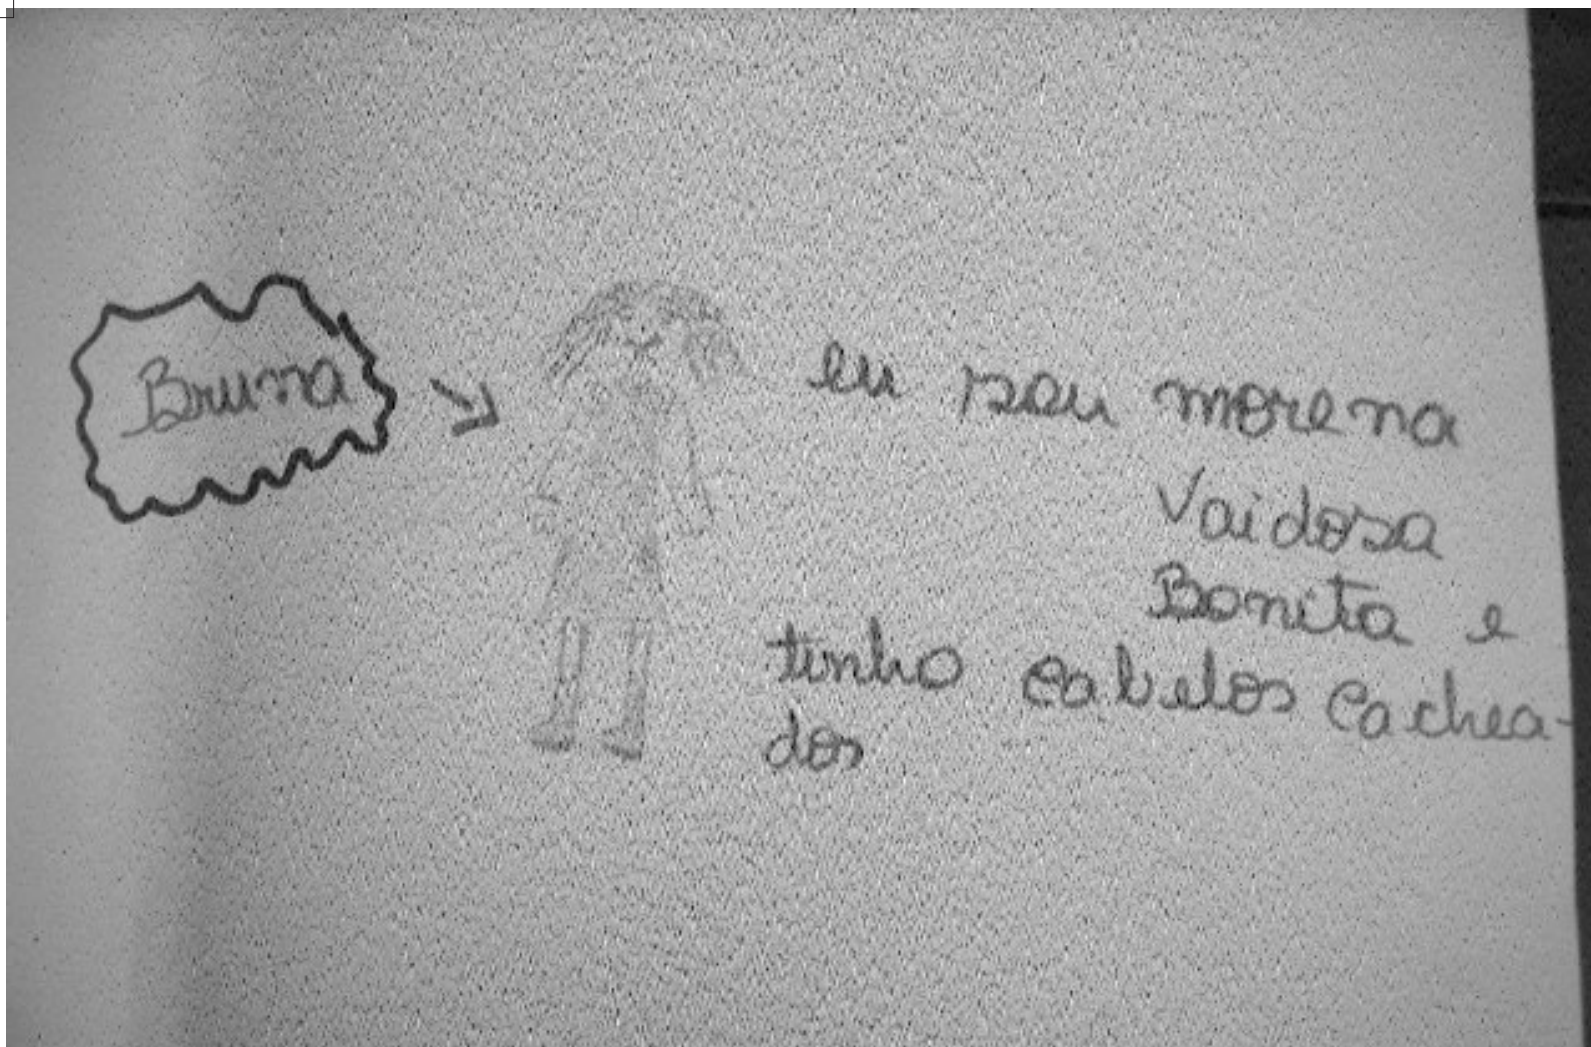 Bruna
eu sou morena
Vaidosa
Bonita e
tenho cabelos cachea-
dos